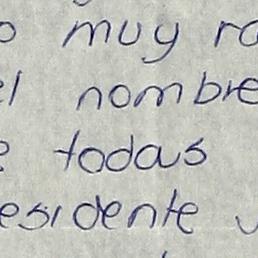 o muy ra
el nombre
e todas
esidente v